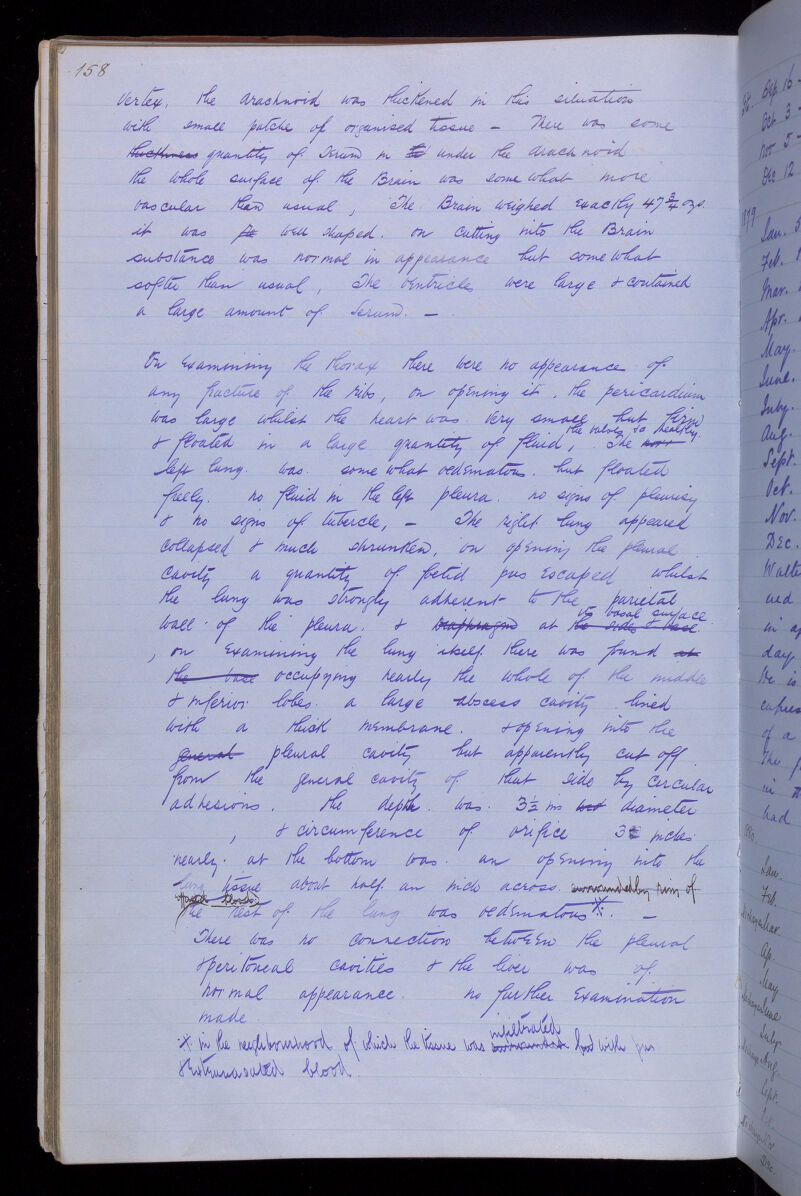 158
Vertex, the arachnoid was thickened in this situation
with small patches of organised tissue - There was some
thickness quantity of serum in under the arachnoid
the whole surface of the Brain was somewhat more
vascular than usual, The Brain weighed exactly 47 3/4 ozs.
it was well shaped. on cutting into the Brain
substance was normal in appearance but somewhat
softer than usual, The ventricles were large & contained
a large amount of Serum. -
On examining the thorax there were no appearance of
any fracture of the ribs, on opening it, the pericardium
was large whilst the heart was very small but firm
& floated in a large quantity of fluid, the valves healthy. The
left lung was somewhat oedematous but floated
freely. no fluid in the left pleura. no signs of pleurisy
& no signs of tubercle, - The right lung appeared
collapsed & much shrunken, on opening the pleural
cavity a quantity of foetid pus escaped whilst
the lung was strongly adherent to the parietal
wall of the pleura. & diaphragm at its basal surface the sides & base
, on examining the lung itself there was found at
the base occupying nearly the whole of the middle
& inferior lobes a large abscess cavity lined
with a thick membrane. & opening into the
general pleural cavity but apparently cut off
from the general cavity of that side by circular
adhesions. the depth was 3½ ins diameter
, & circumference of orifice 3 inches
nearly. at the bottom was an opening into the
lung tissue about half an inch across surrounded by rim of
blood
the rest of the lung was oedematous ※. -
There was no connection between the pleural
& peritoneal cavities & the liver was of
normal appearance. no further Examination
made.
※ in the neighbourhood of which the tissue was infiltrated surrounded with pus
& extravasated blood.
Sep. 16
Oct. 3
Nov 5
Dec 12
Jan.
Feb.
Mar.
Apr.
May.
June.
July.
Aug.
Sept.
Oct.
Nov.
Dec.
in a
day.
He is
of a
The
had
Jan.
Feb.
Ap.
May
July
Aug.
Sept.
Dec.